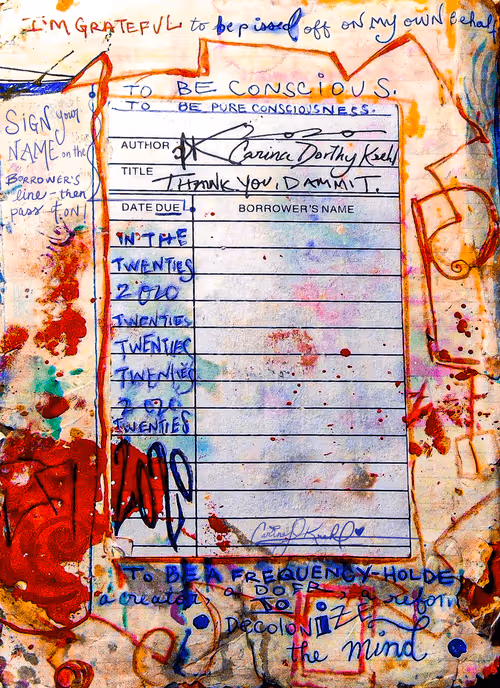 I'M GRATEFUL to be pissed off ON MY OWN Behalf
TO BE CONSCIOUS.
TO BE PURE CONSCIOUSNESS.
SIGN your
NAME on the
BORROWER'S
line - then
pass it ON!
AUTHOR Carina Dorthy
TITLE THANK YOU, DAMMIT.
DATE DUE BORROWER'S NAME
IN THE
TWENTIES
2020
TWENTIES
TWENTIES
TWENTIES
2020
TWENTIES
2020
TO BE A FREQUENCY-HOLDER
a creator, a DOER, a reform
TO
DecolonIZE
the mind